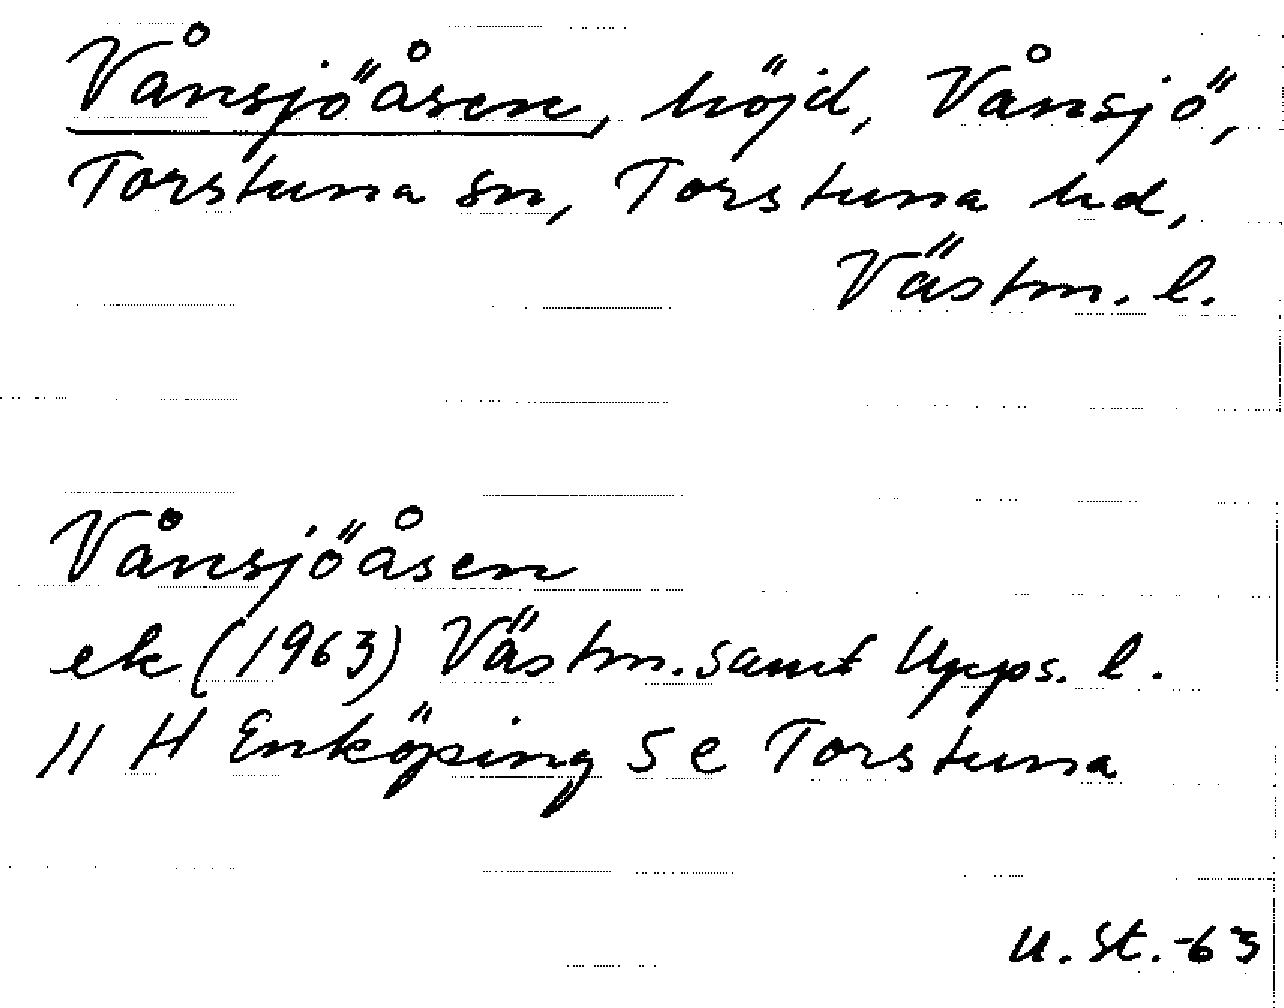 Vånsjöåsen, höjd, Vånsjö,
Torstuna sn, Torstuna hd,
Västm. l.
Vånsjöåsen
ek (1963) Västm. samt Upps. l.
11 H Enköping 5 e Torstuna
U. St. -63